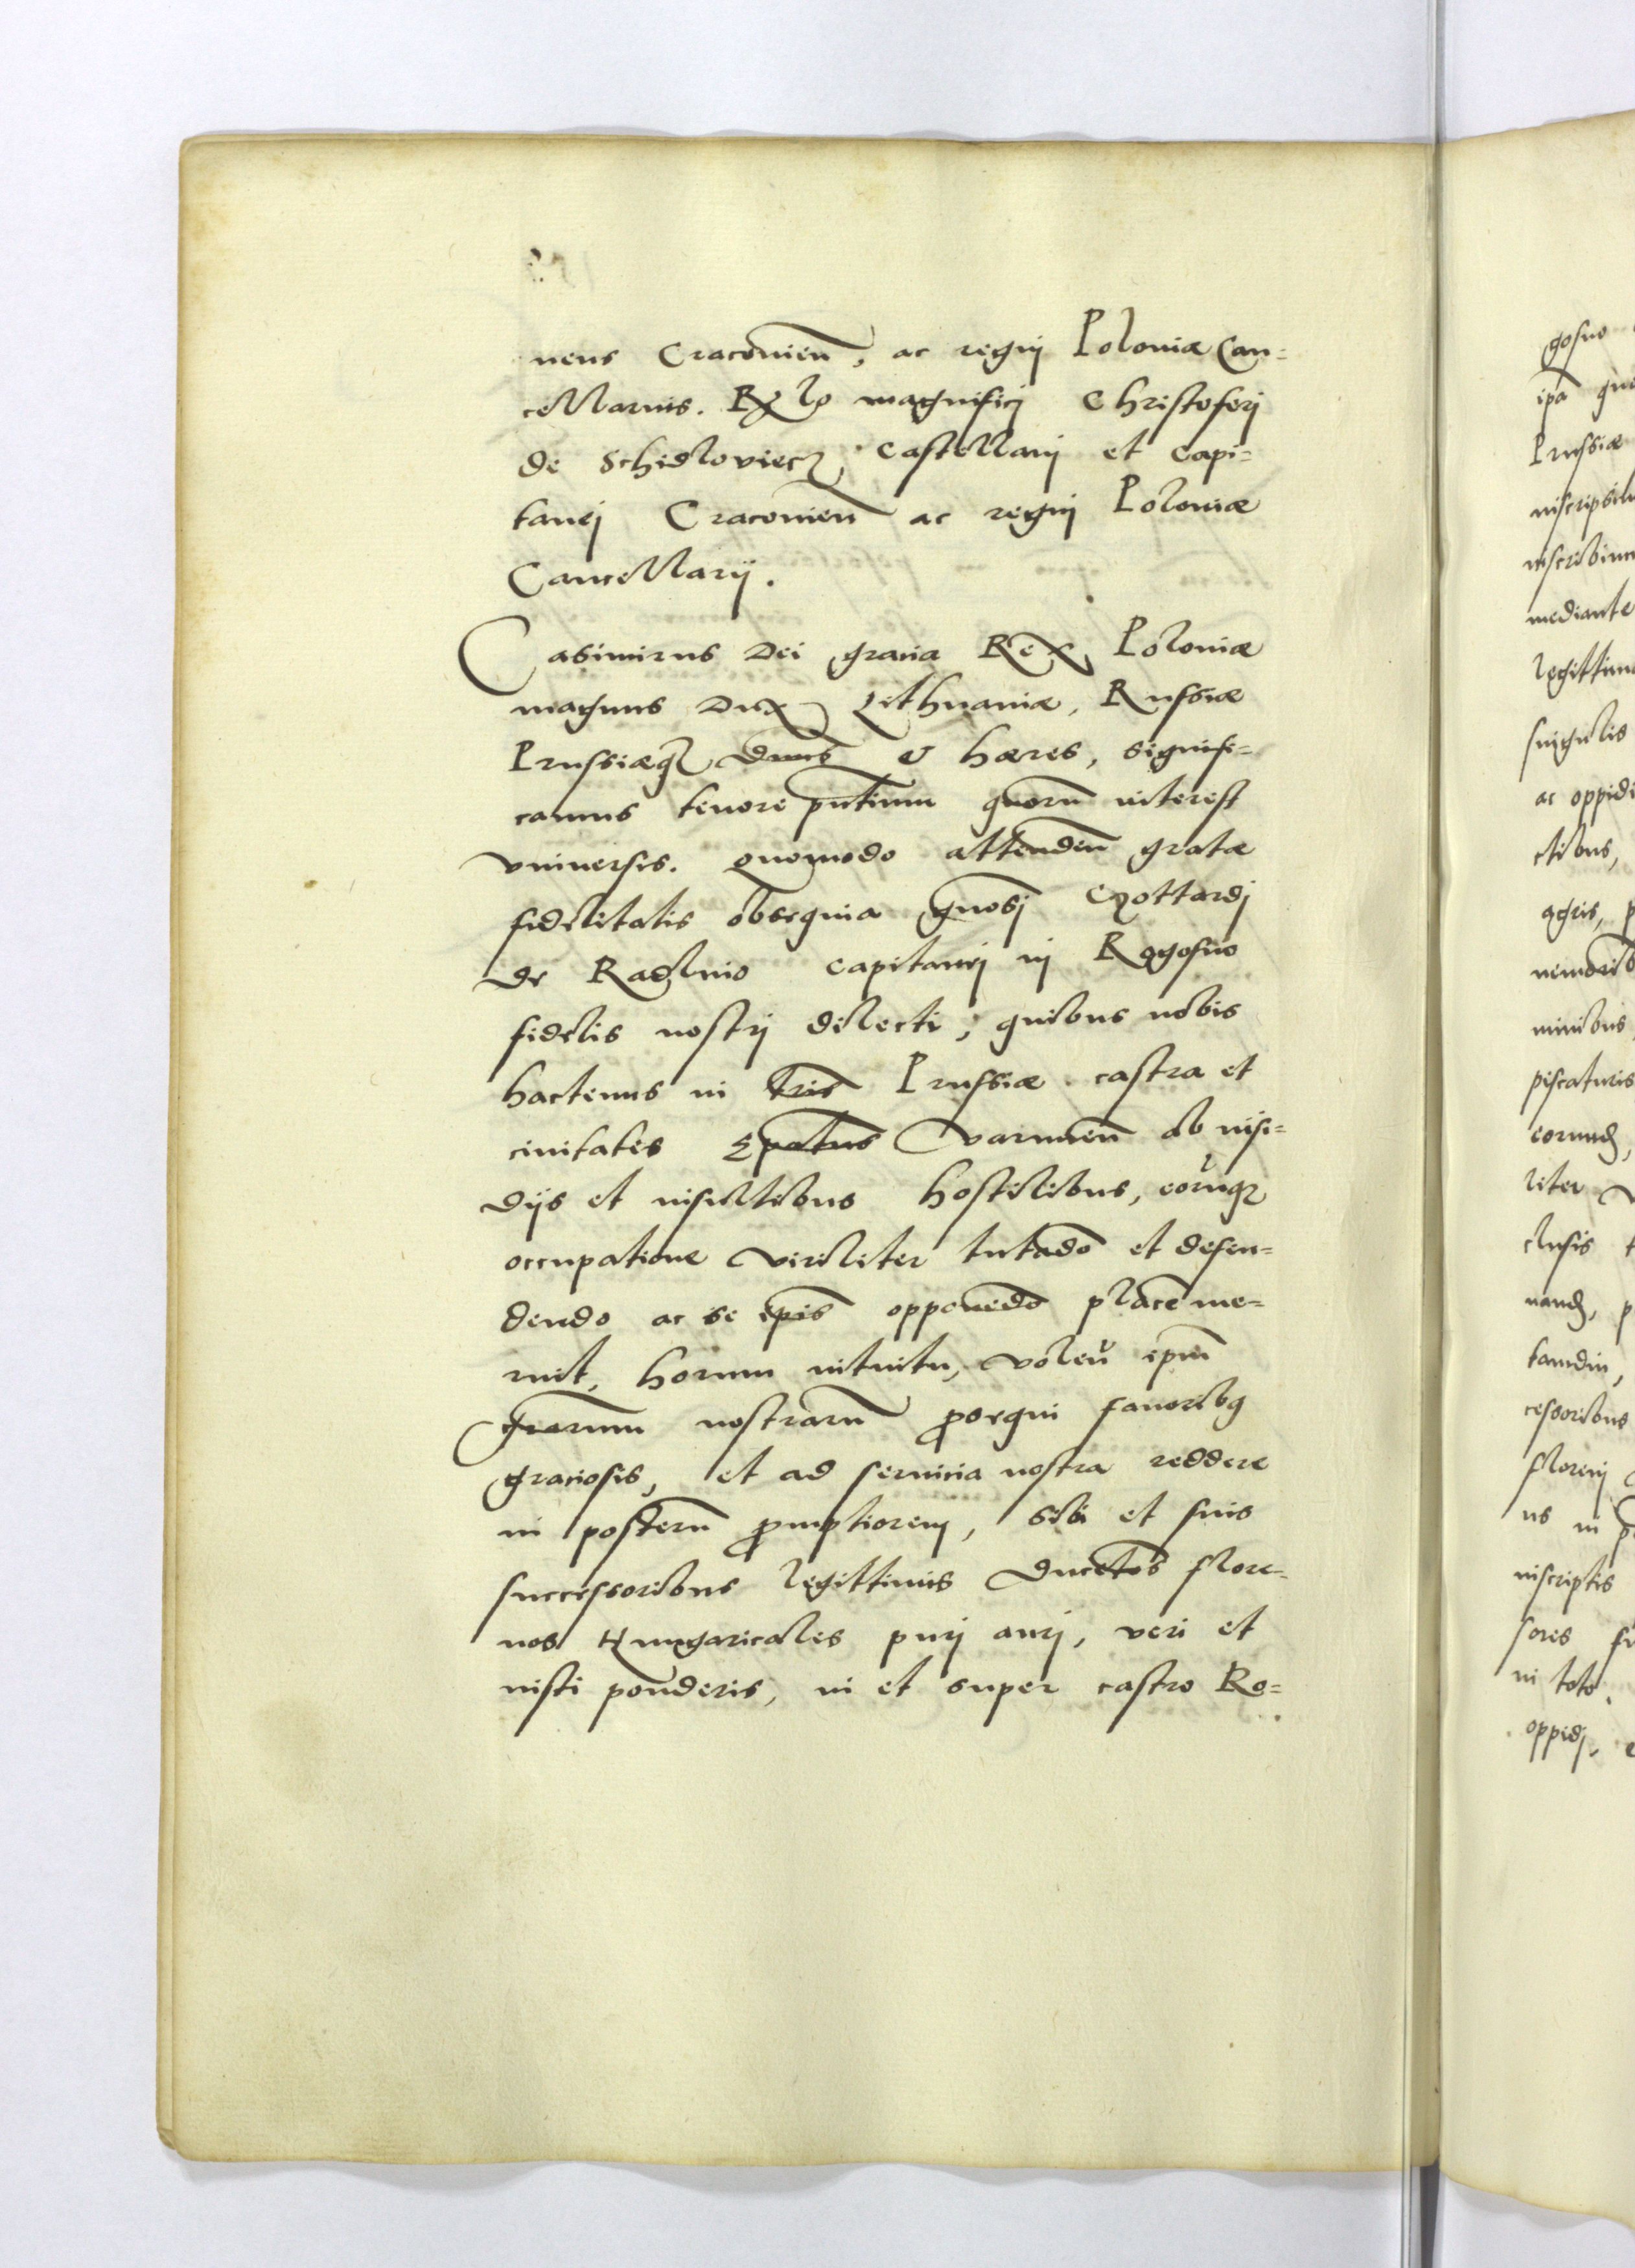 neus Craconieñ, ac regnj Poloniæ Can-
cellarius. Rlo magnificj Christoferj
de Schidloviecz, Castellanj et Capi-
tanej Craconieñ ac regnj Poloniæ
Cancellarij.
Casimirus Dei gracia Rex Poloniæ
magnus Dux Lithuaniæ, Russiæ
Prussiæq3 dnus & hæres, signifi-
camus tenore pñtium quorũ interest
vniuersis. Quomodo attendeñ gratæ
fidelitatis obsequia gnosj Czottardj
de Radlnio capitanej in Rogosno
fidelis nostrj dilecti, quibus nobis
hactenus in tris Prussiæ castra et
ciuitates Epatus Varmieñ ab insi-
dijs et insultibus hostilibus, eorũq3
occupatione viriliter tutãdo et defen-
dendo ac se ipis opponẽdo placẽ me-
ruit, horum intuitu, voleñ ipm̃
grarum nostrarũ prosequi fauoribq
graciosis, et ad seruicia nostra reddere
in posterũ promptiorem, sibi et suis
successoribus legittimis Ducetos flore-
nos Hungaricales purj aurj, veri et
iusti ponderis, in et super castro Ro-
gosno
ipã
Prussiæ
inscripsi
inscribim
mediante
legittim
singulis
ac oppidi
ctibus,
agris, p
nemorib
minibus,
piscaturis
eorund,
liter
clusis
nand, p
tamdiu,
cessoribus
florenj
us in p
inscriptis
sores
in toto.
oppidj,